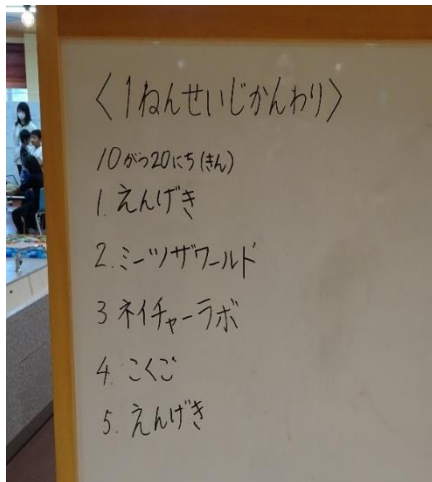 〈1ねんせいじかんわり〉
10がつ20にち(きん)
1. えんげき
2. ミーツザワールド
3 ネイチャーラボ
4. こくご
5. えんげき